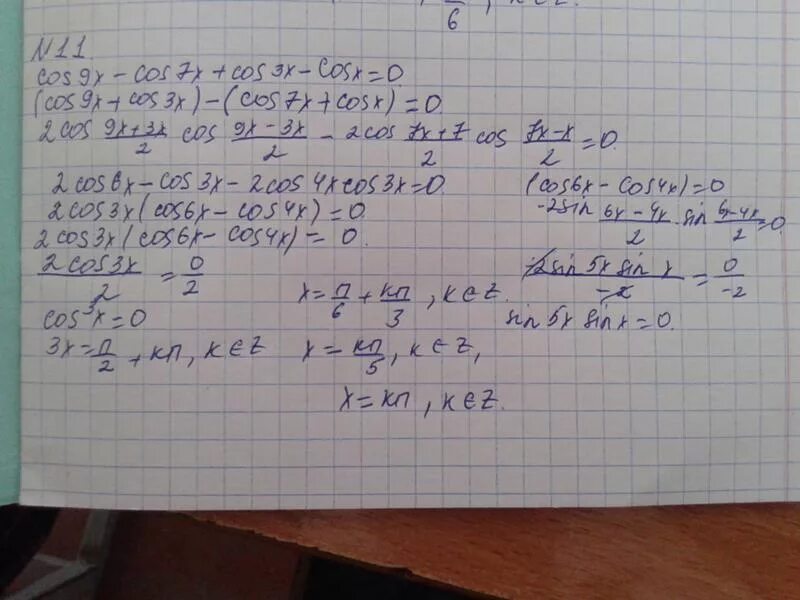 6
N11.
cos9x - cos7x + cos3x - cosx = 0
(cos9x + cos3x) - (cos7x + cosx) = 0.
2cos (9x+3x)/2 cos (9x-3x)/2 - 2cos (7x+7)/2 cos (7x-x)/2 = 0.
2cos6x - cos3x - 2cos4xcos3x = 0.
2cos3x(cos6x - cos4x) = 0.
2cos3x(cos6x - cos4x) = 0.
2cos3x/2 = 0/2
cos3x = 0
3x = п/2 + кп, к∈Z
x = п/6 + кп/3, к∈Z.
x = кп/5, к∈Z,
x = кп, к∈Z.
(cos6x - cos4x) = 0
-2sin (6x-4x)/2 sin (6x-4x)/2 = 0
-2sin5xsinx/-2 = 0/-2
sin5xsinx = 0.